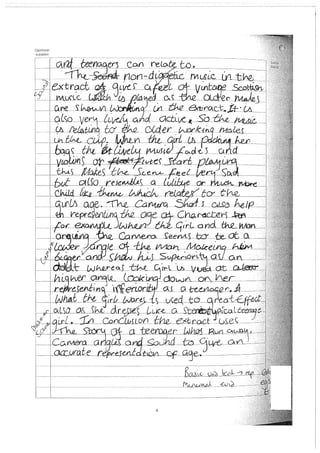 Question
number
and teenagers can relate to.
The Sound non-diegetic music in the
extract of gives a feel of vintage Scottish
music which is played as the Older males
are shown working in the extract. It is
also very lively and active. So the music
is relating to the Older working males
in the clip. When the girl is packing her
bags the lively music fades and
violins or flutes start playing
this makes the scene feel very sad
but also resembles a lullabye or much more
child like theme which relates to the
girls age. The Camera Shots also help
in representing the age of Characters
for example when the Girl and the man
arguing the camera seems to be at a
lower angle of the man making him
bigger and show his Superiority as an
adult whereas the Girl is viewed at a
higher angle looking down on her
representing inferiority as a teenager.
What the girl wears is used to great effect
also as she dresses like a Stereotypical teenage
girl. In Conclusion the extract uses
the Story of a teenager who's Run away,
Camera angles and Sound to Give an
accurate representation of age.
Basic
Minimal